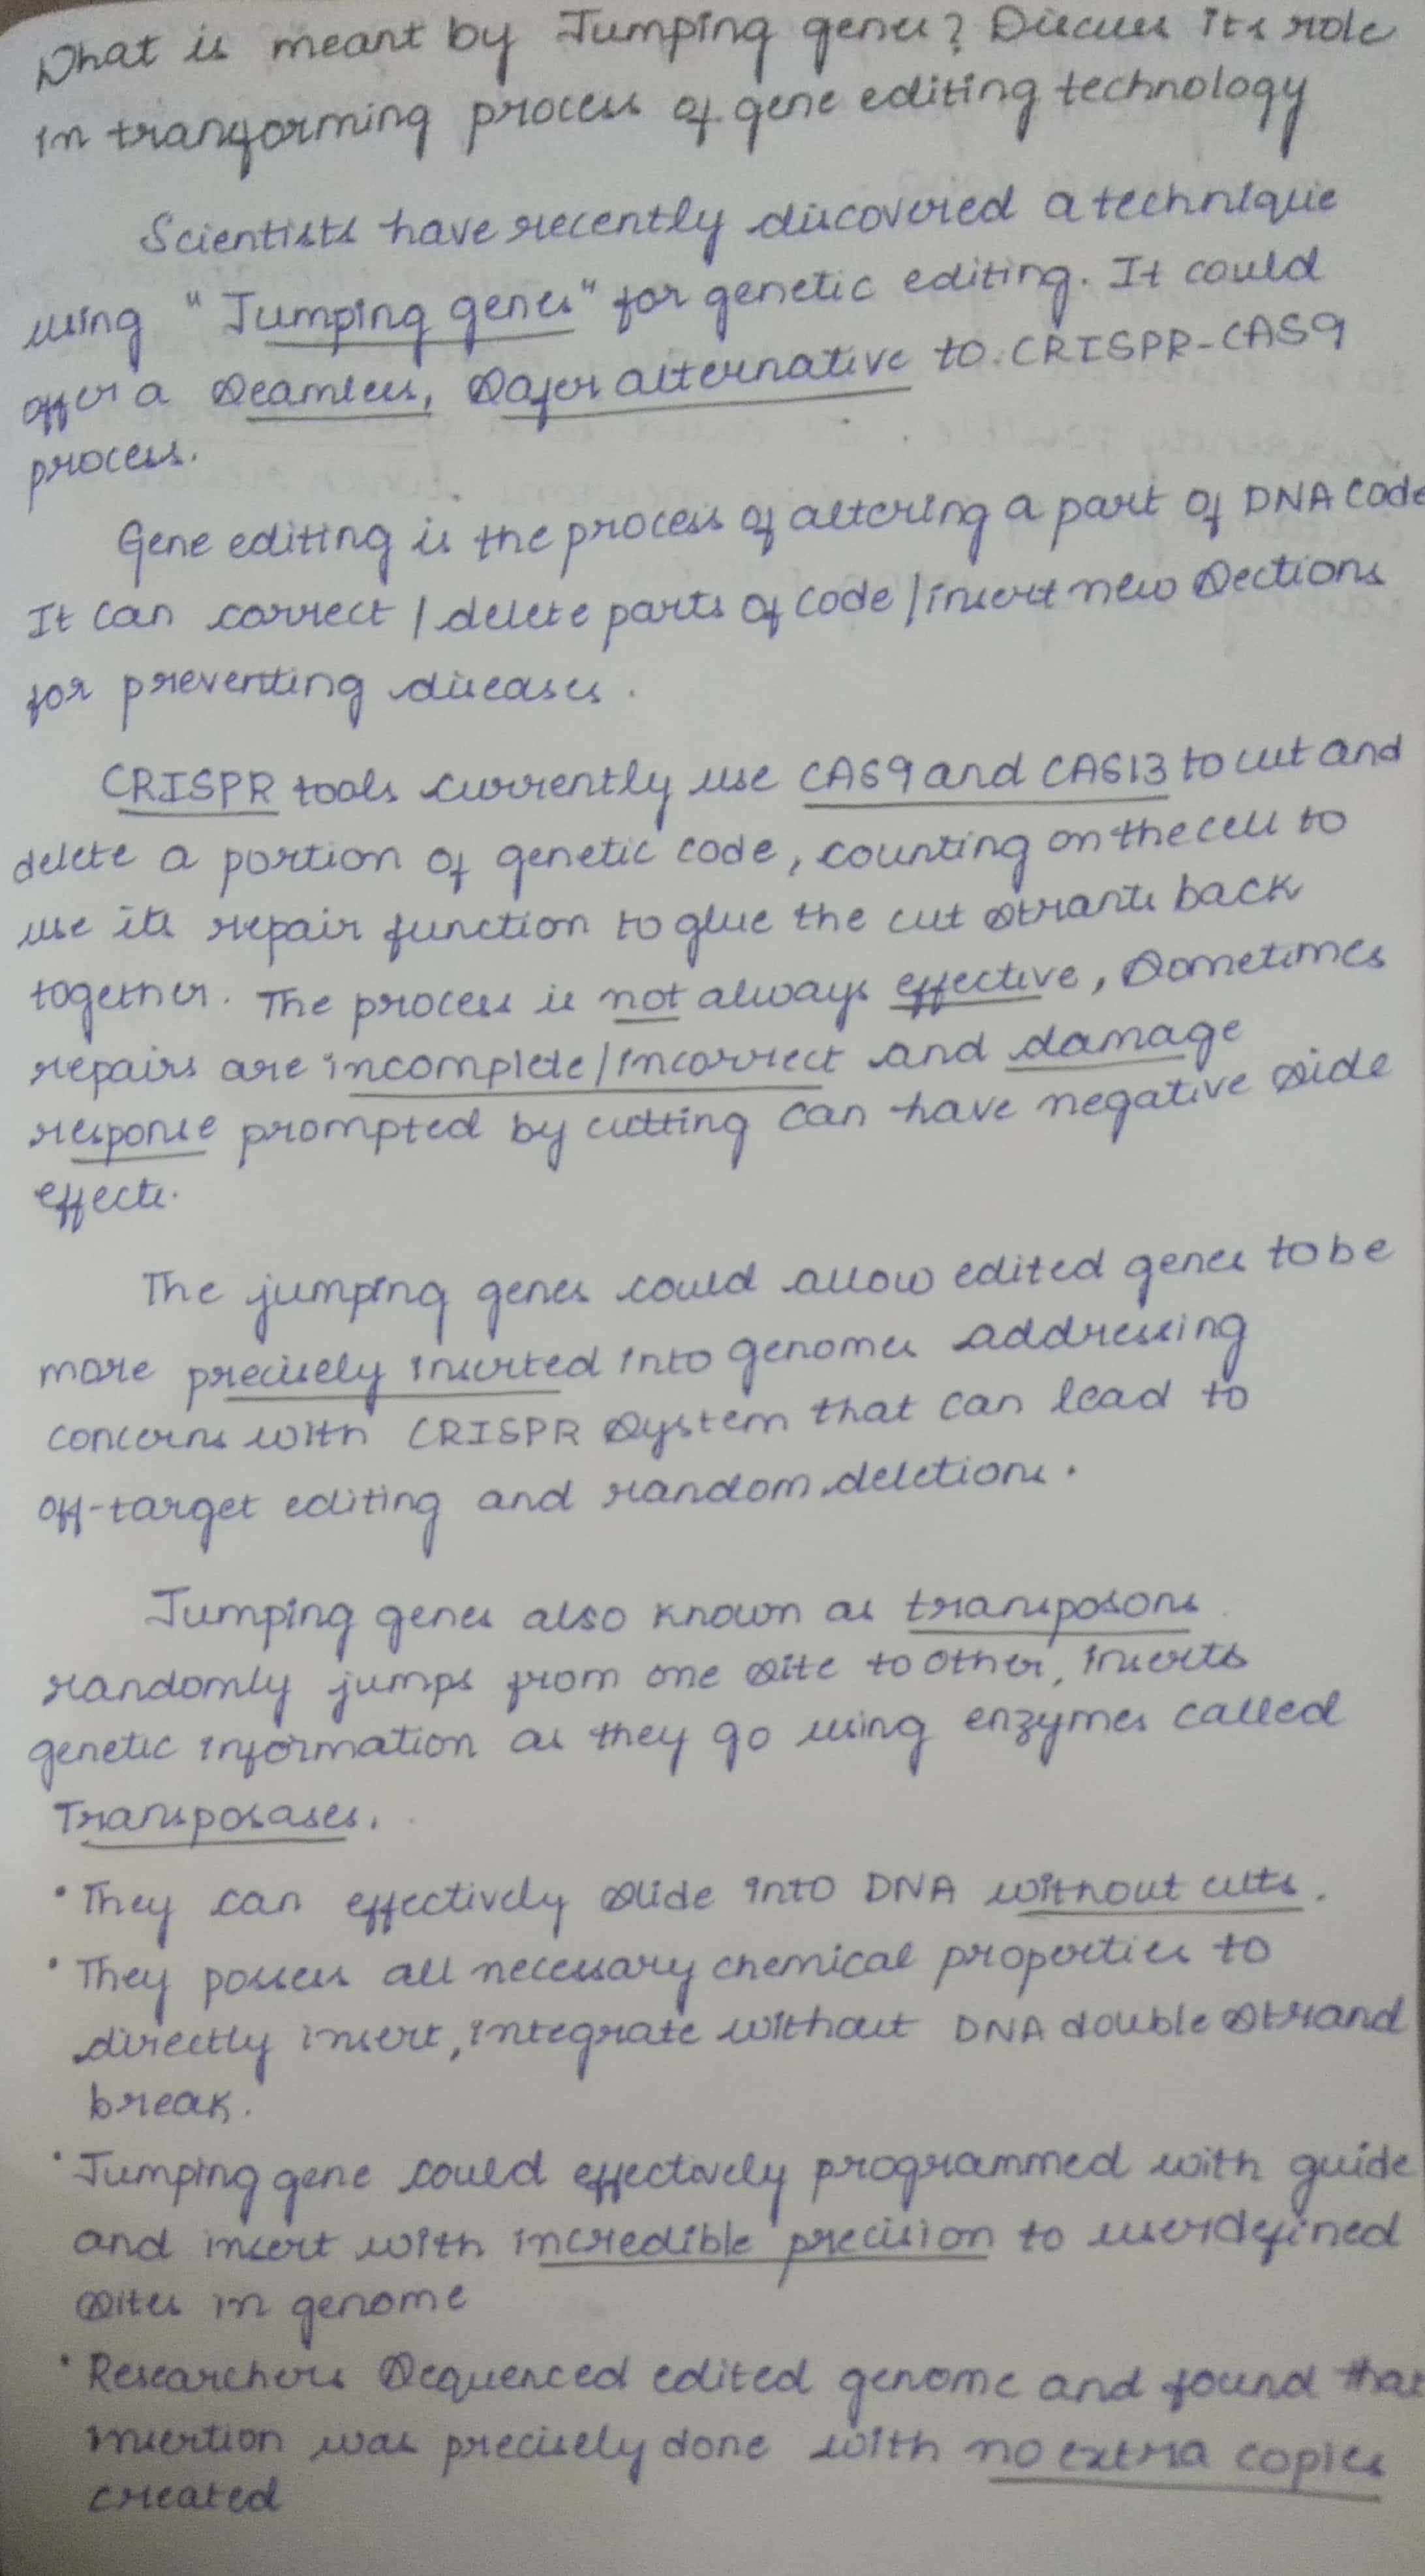 What is meant by Jumping genes? Discuss its role
in transforming process of gene editing technology
Scientists have recently discovered a technique
using "Jumping genes" for genetic editing. It could
offer a seamless, safer alternative to CRISPR-CAS9
process.
Gene editing is the process of altering a part of DNA code
It can correct / delete parts of code / insert new sections
for preventing diseases.
CRISPR tools currently use CAS9 and CAS13 to cut and
delete a portion of genetic code, counting on the cell to
use its repair function to glue the cut strants back
together. The process is not always effective, sometimes
repairs are incomplete/incorrect and damage
response prompted by cutting can have negative side
effects.
The jumping genes could allow edited genes to be
more precisely inserted into genomes addressing
concerns with CRISPR system that can lead to
off-target editing and random deletions.
Jumping genes also known as transposons
randomly jumps from one site to other, inserts
genetic information as they go using enzymes called
Transposases.
• They can effectively slide into DNA without cuts.
• They possess all necessary chemical properties to
directly insert, integrate without DNA double strand
break.
• Jumping gene could effectively programmed with guide
and insert with incredible precision to userdefined
sites in genome
• Researchers sequenced edited genome and found that
insertion was precisely done with no extra copies
created